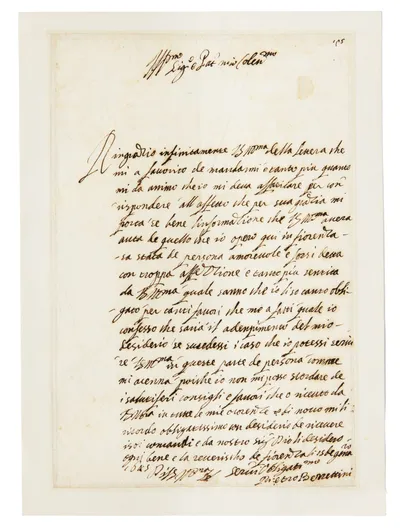 195
Ill.mo
Sig.r e Pat.n mio Colen.mo
Ringratio infinitamente V.S. Ill.ma della lettera che
mi a favorito de mandarmi e tanto piu quanto
mi da animo che io mi deva affaticare per cor
rispondere all affetto che per sua gratia mi
porta se bene l'informatione che V.S. Ill.ma avera
auta de quello che io opero qui in fiorenza
sa stata de persona amorevole e forsi deva
con troppa affetione e tanto piu sentita
da V.S. Ill.ma quale sa che io li so tanto obli
gato per tanti favori che me a fatti quale io
confesso che saria l adempimento del mio
desiderio se succedessi caso che io potessi servi
re V.S. Ill.ma in queste parte de persona comme
mi acenna poiche io non mi posso scordare de
i salutiferi consigli e favori che o riceuto da
V.S. Ill.ma in tutte le mie e di novo mi li
ricordo obligatissimo con desiderio de ricevere
i soi comandi e da nostro Sig.r Dio li desidero
ogni bene e la reverischo de fiorenza li
1645 D V.S. Ill.ma
Servit.r Obligatiss.mo
Pietro Berrettini